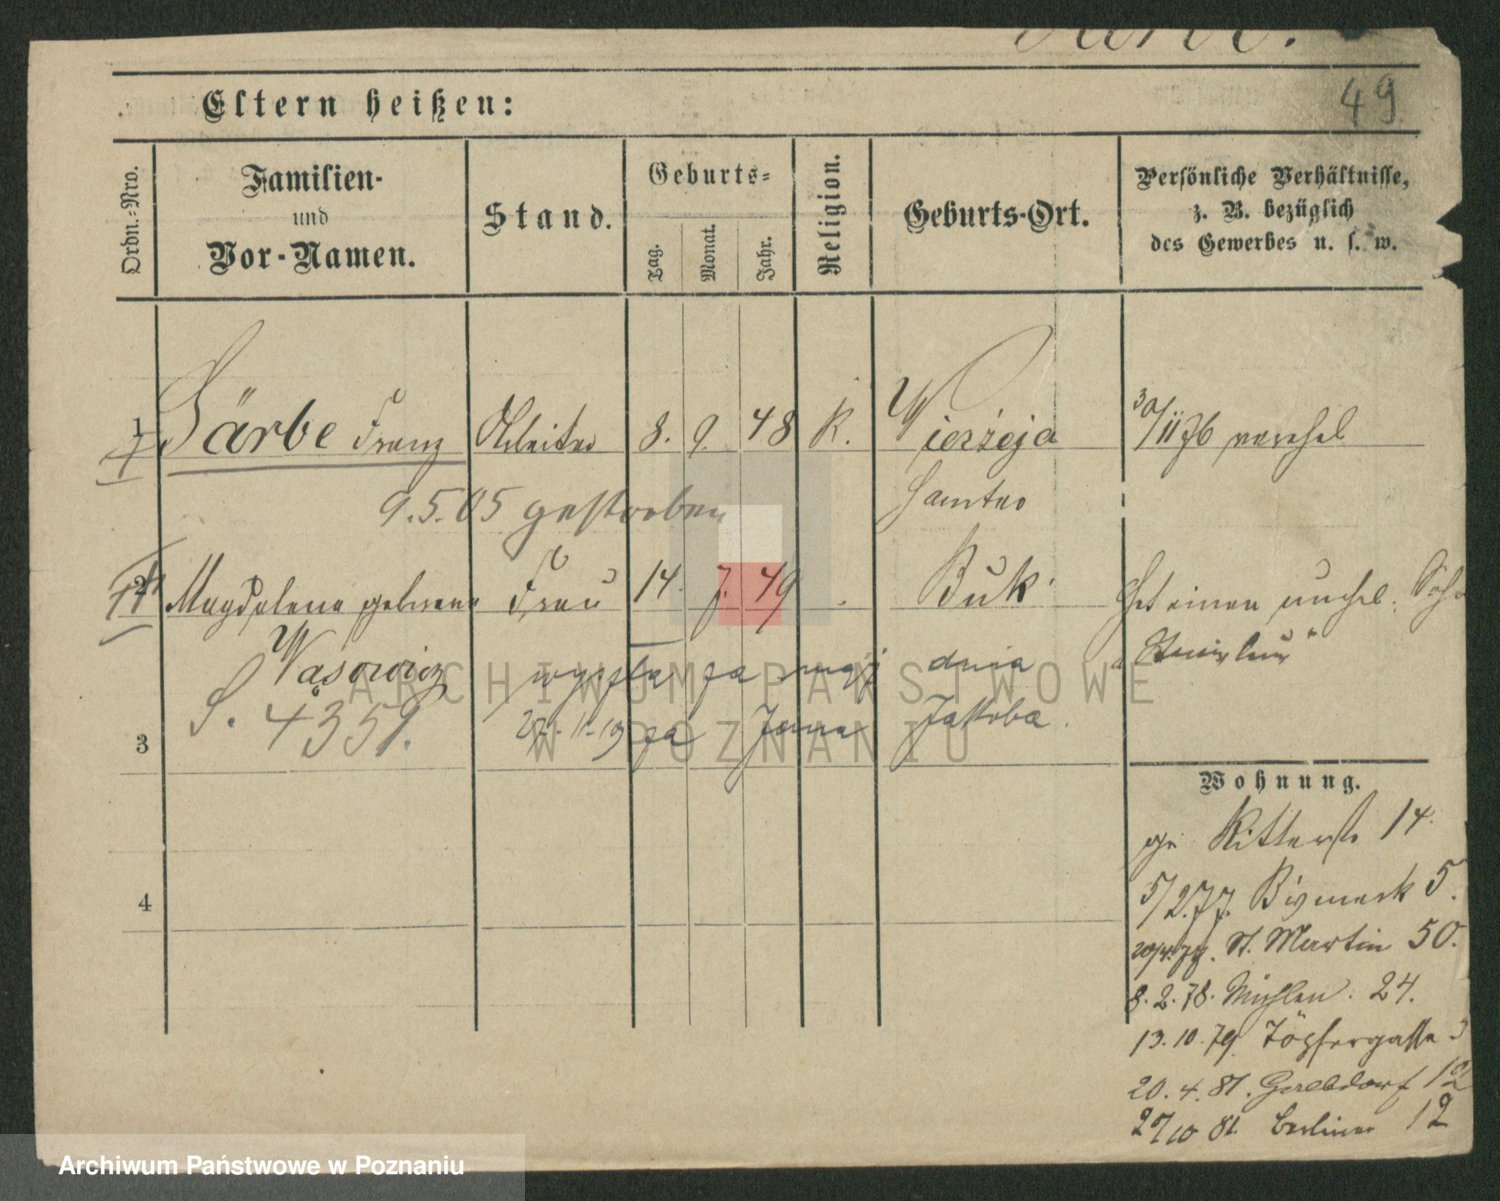 49
Eltern heißen:
Ordn.-Nro.
Familien-
und
Vor-Namen.
Stand.
Geburts-
Tag.
Monat.
Jahr.
Religion.
Geburts-Ort.
Persönliche Verhältnisse,
z. B. bezüglich
des Gewerbes u. s. w.
1 Särbe Franz Arbeiter 8. 9. 48 K. Wierzeja 30/11 76
Samter
9.5.05 gestorben
2 Magdalena geborene Frau 14. 7. 49 Buk Hat einen unehel. Sohn
Wąsowicz
wyszła za mąż dnia
S. 4359.
za Jana Jakoba.
3
4
Wohnung.
Ritterstr 14.
5/2.77. Bismark 5.
St. Martin 50.
8.2.78. Mühlen. 24.
13.10.79. Töpfergasse 3
20.4.81.
20/10 81. Berliner 12
ARCHIWUM PAŃSTWOWE
W POZNANIU
Archiwum Państwowe w Poznaniu